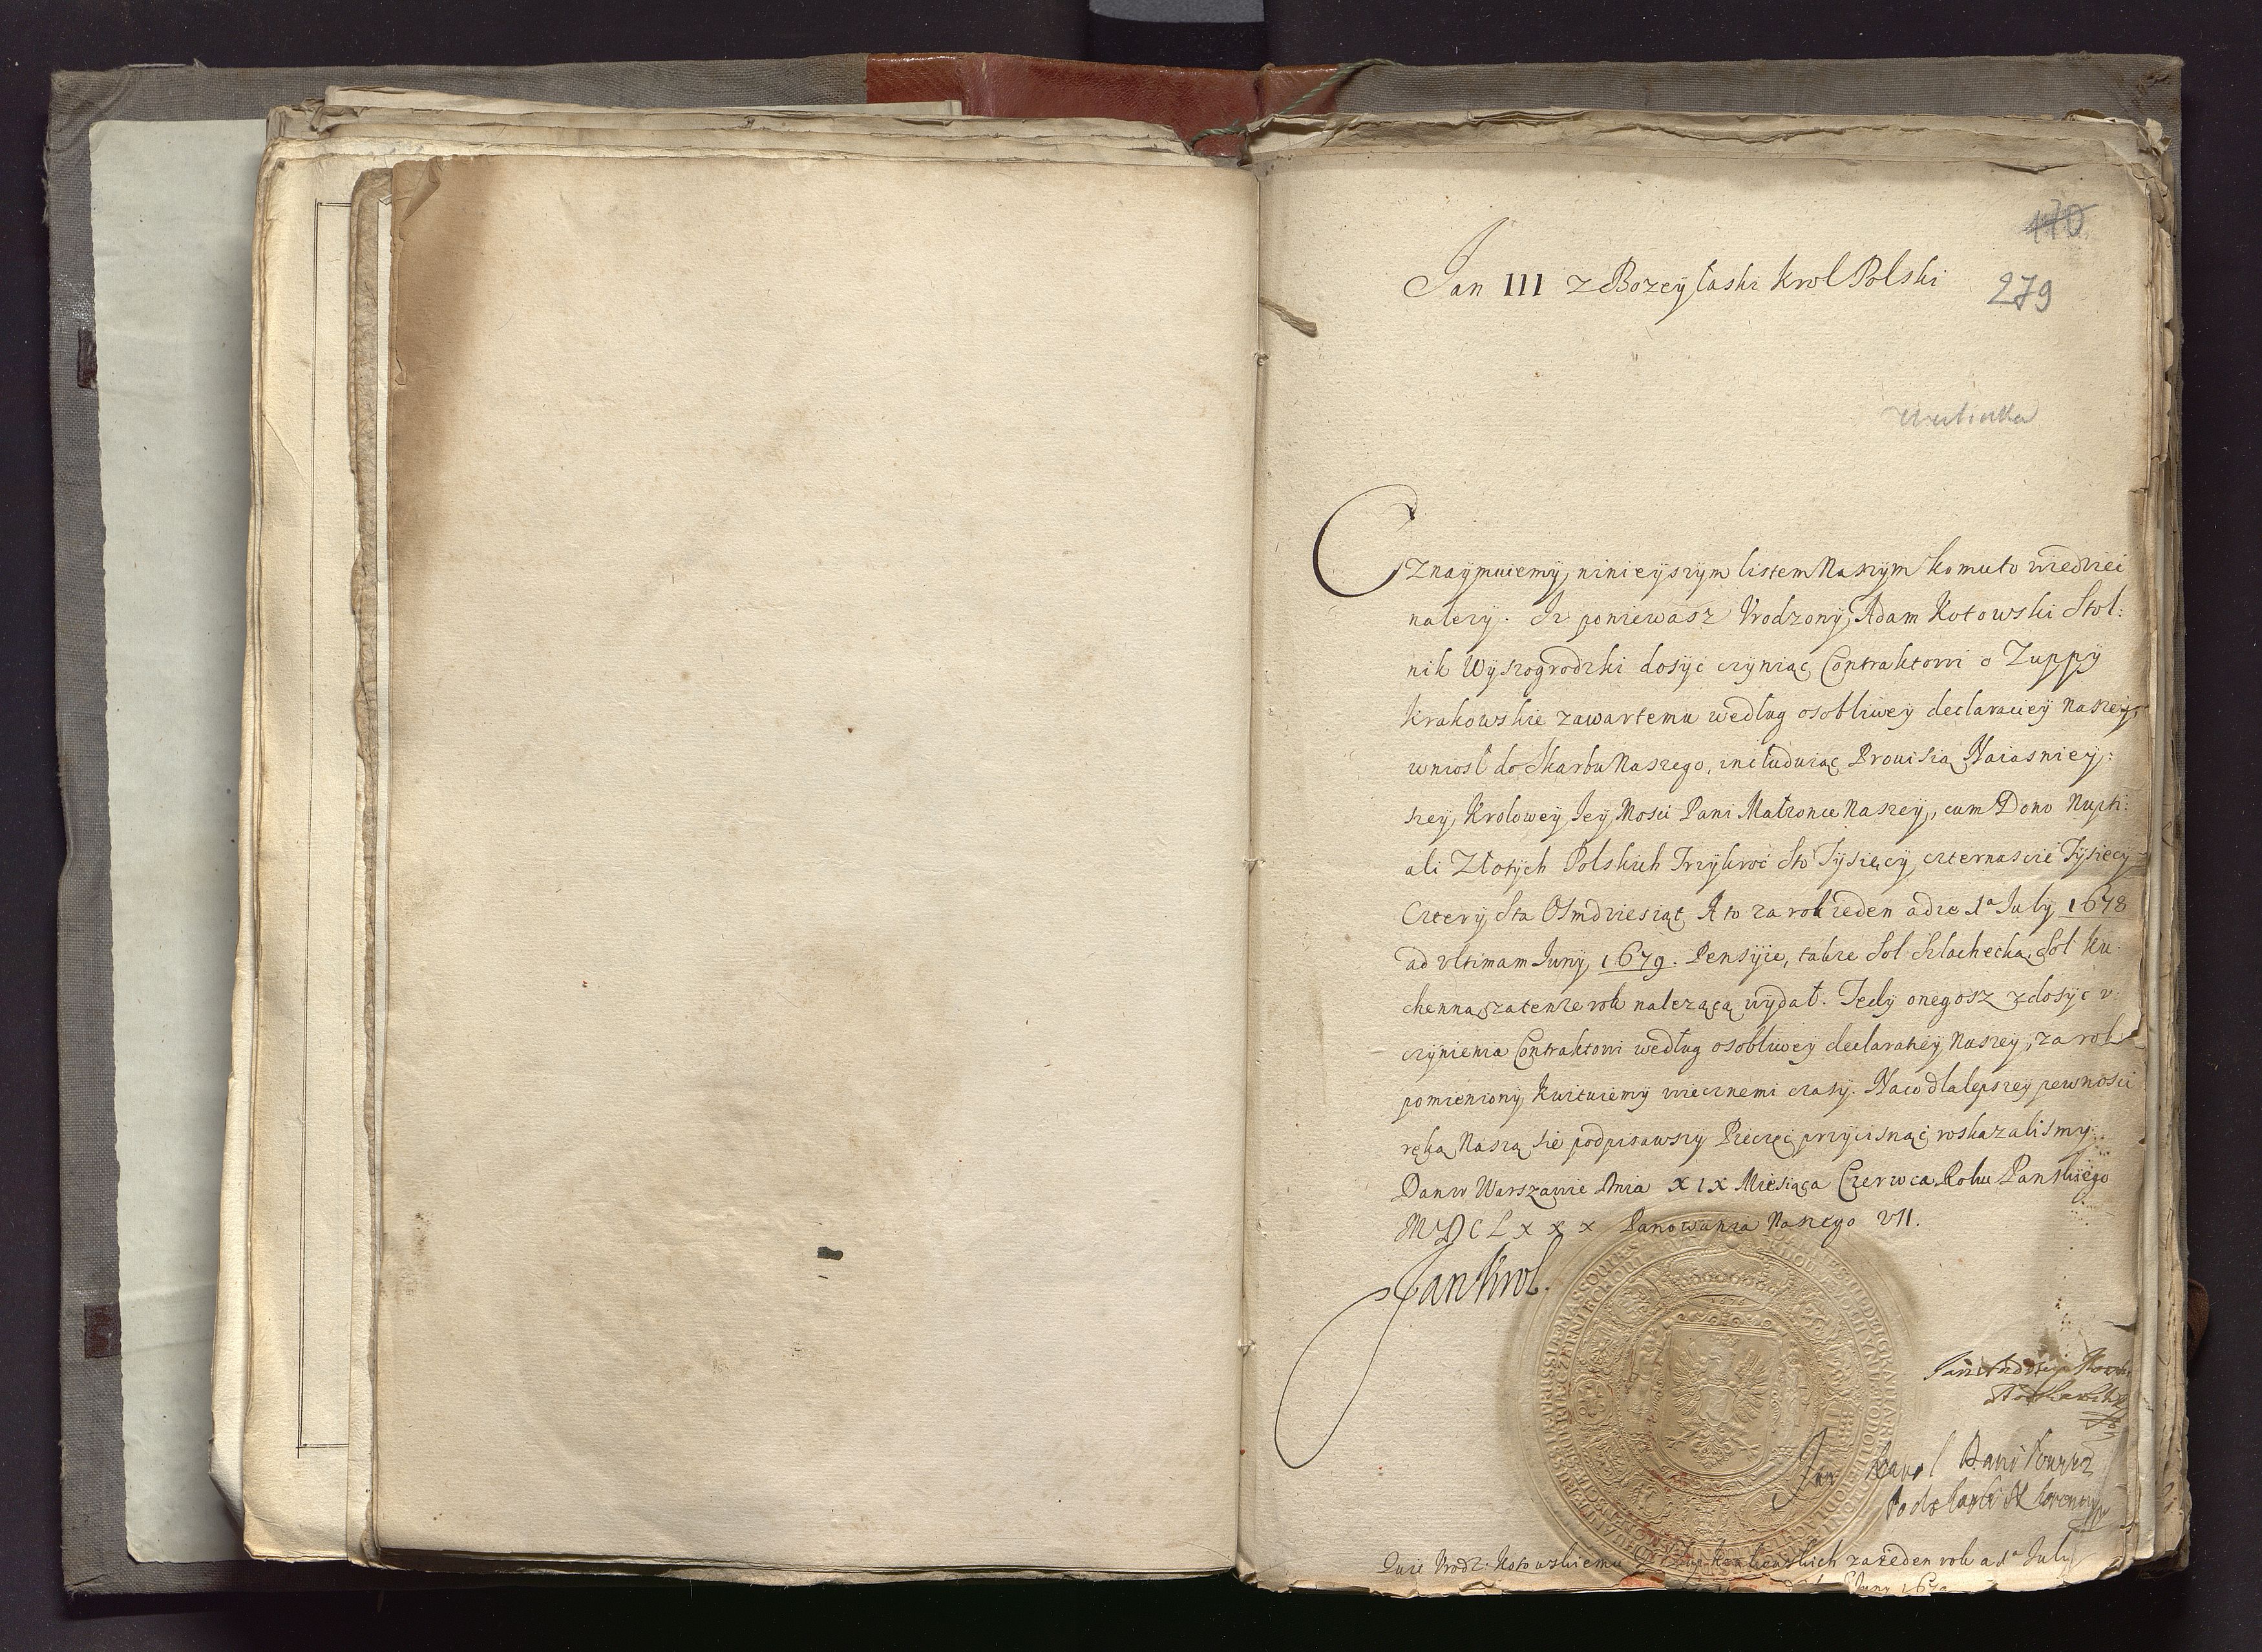 170
Jan III z Bozey łaski Krol Polski
279
Oznaymuiemy, ninieyszym listem Naszym komuto wiedziec
nalezy. Iz poniewasz Vrodzony Adam Kotowski Stol:
nik Wyszogrodzki dosyć czyniąc Contraktowi o Zuppy
Krakowskie zawartemu według osobliwey declaraciey Naszey,
wniosł do Skarbu Naszego, includuiąc Prouisią Naiasniey:
szey Krolowey Jey Mosci Pani Małzonce Naszey, cum Dono Nupti:
ali Złotych Polskich Trzykroć Sto Tysięcy, czternascie Tysięcy
Cztery Sta Osmdziesiąt A to za rok ieden a die 1a July 1678
ad vltimam Juny 1679. Pensyie, takze Sol Szlachecką, Sol Ku:
chenną, zatenze rok nalezącą wydał. Tedy onegosz z dosyć v:
czynienia Contraktowi według osobliwey declaratiey Naszey, za rok
pomieniony, Kwituiemy wiecznemi czasy. Naco dla lepszey pewnosci
ręką Naszą sie podpisawszy Pieczęć przycisnąć roskazalismy.
Dan w Warszawie Dnia XIX Miesiąca Czerwca Roku Panskiego
MDCLXXX Panowania Naszego VII.
Jan Krol.
1676
Jan
Karol
Quit Vrodz: Kotowskiemu Zup Krakowskich za ieden rok a 1a July
Juny 1679